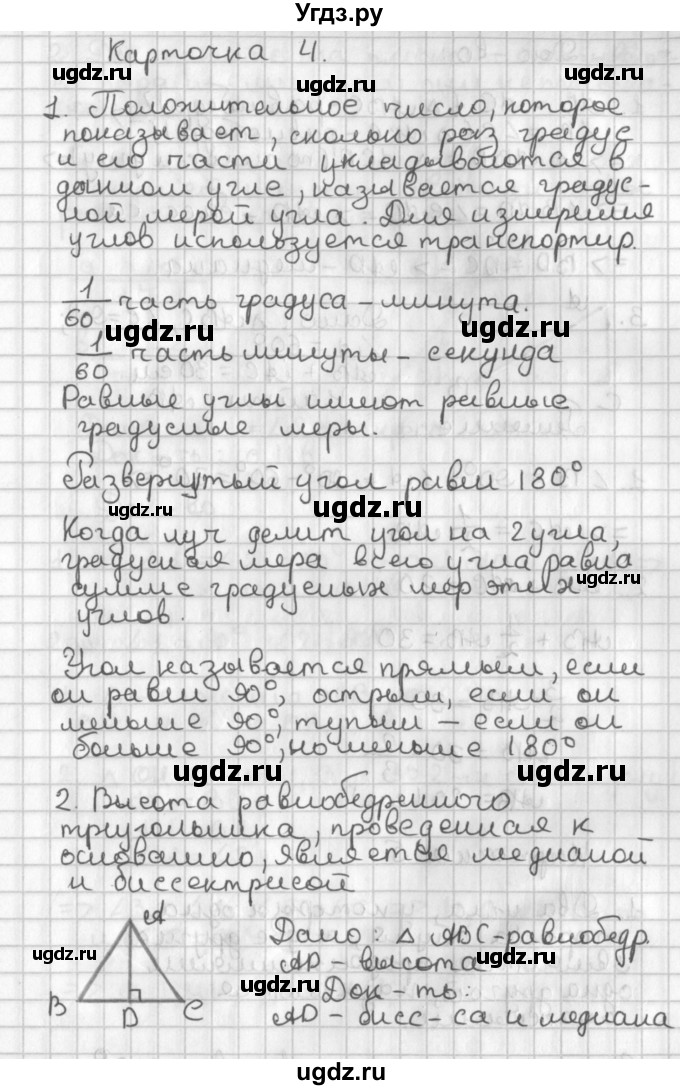 Угдз.ру
Карточка 4.
ugdz.ru ugdz.ru
1. Положительное число, которое
показывает, сколько раз градус
и его части укладываются в
данном угле, называется градус-
ной мерой угла. Для измерения
углов используется транспортир.
ugdz.ru ugdz.ru
1/60 часть градуса - минута.
ugdz.ru ugdz.ru
1/60 часть минуты - секунда
Равные углы имеют равные
градусные меры.
ugdz.ru ugdz.ru
Развернутый угол равен 180°
ugdz.ru ugdz.ru
Когда луч делит угол на 2 угла,
градусная мера всего угла равна
сумме градусных мер этих
ugdz.ru
углов.
ugdz.ru ugdz.ru
Угол называется прямым, если
он равен 90°, острым, если он
меньше 90°, тупым - если он
больше 90°, но меньше 180°
ugdz.ru ugdz.ru
2. Высота равнобедренного
треугольника, проведенная к
основанию, является медианой
и биссектрисой
ugdz.ru ugdz.ru
A
Дано: △ ABC - равнобедр.
ugdz.ru ugdz.ru
AD - высота
Док-ть:
ugdz.ru
B D C
AD - бисс-са и медиана
ugdz.ru ugdz.ru